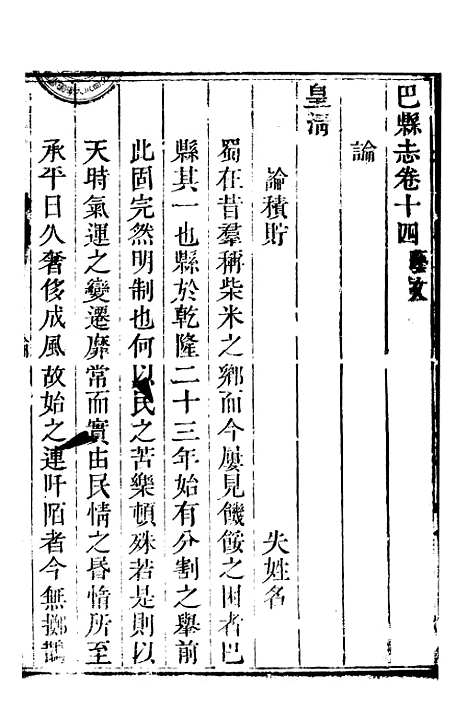 巴縣志卷十四藝文
論
皇清
論積貯 失姓名
蜀在昔羣稱柴米之鄉而今屢見饑餒之困者巴
縣其一也縣於乾隆二十三年始有分割之舉前
此固完然明制也何以民之苦樂頓殊若是則以
天時氣運之變遷靡常而實由民情之昬惰所至
承平日久奢侈成風故始之連阡陌者今無擲